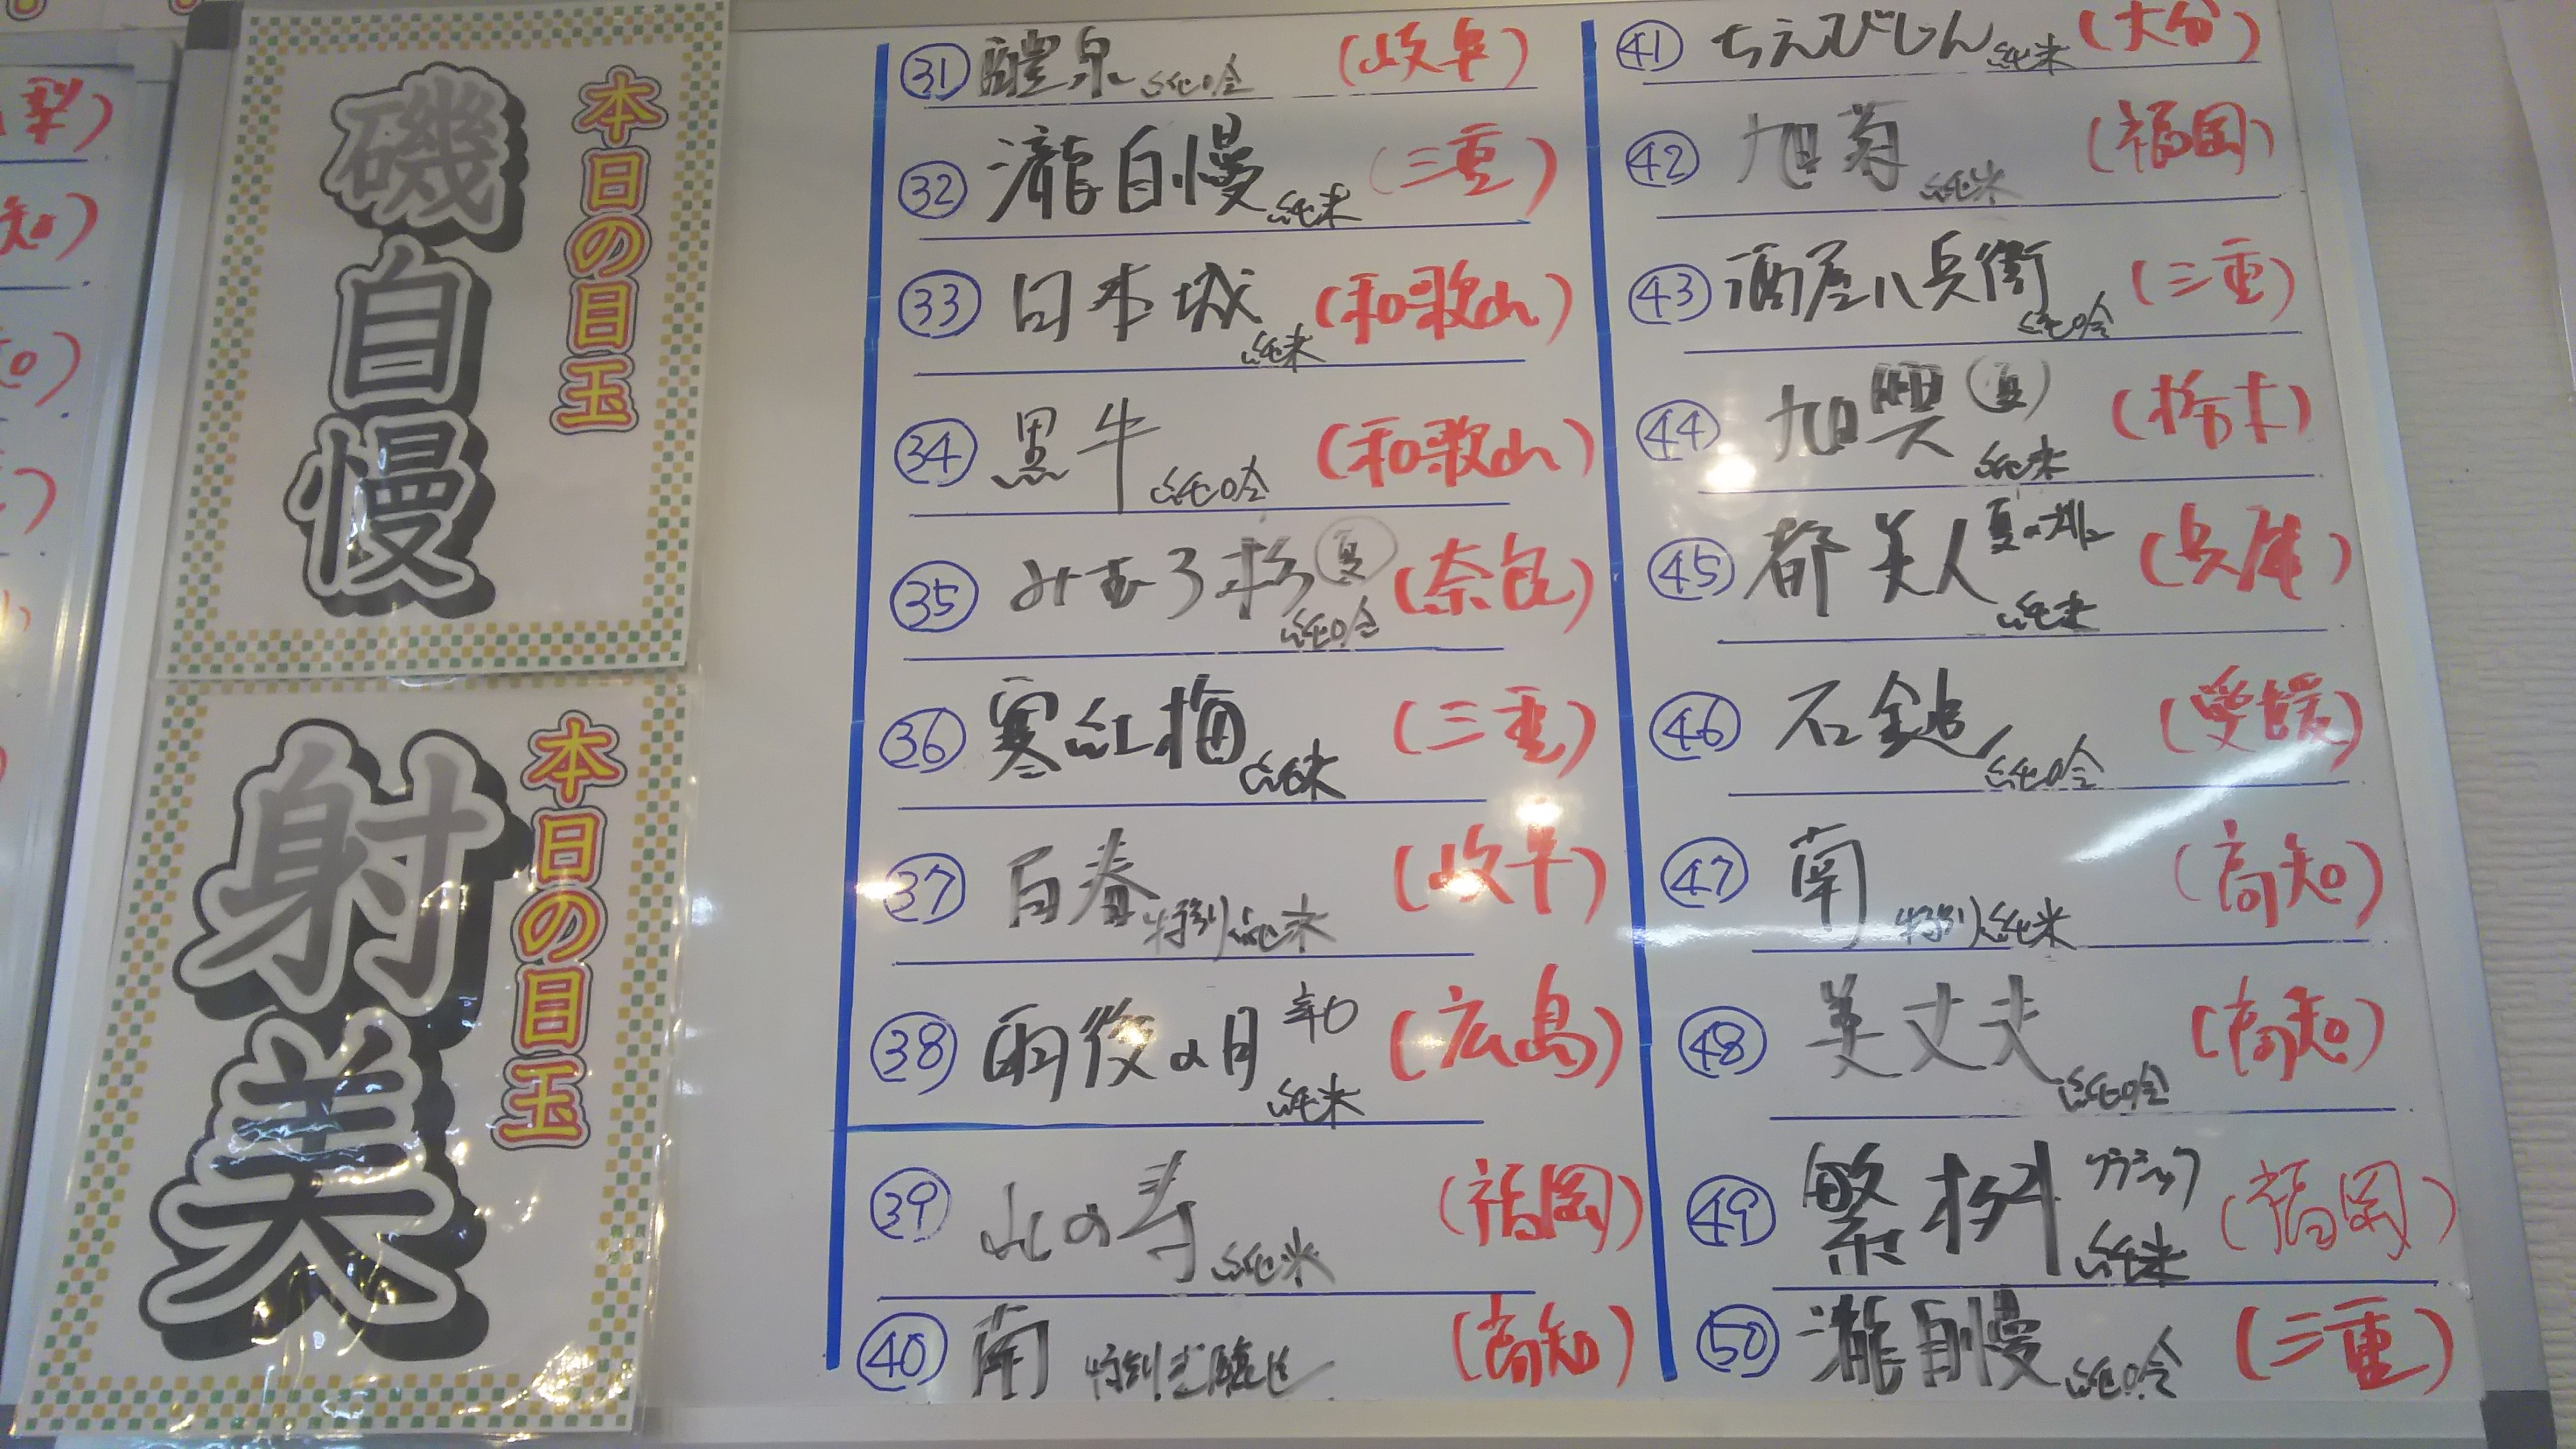 本日の目玉
磯自慢
本日の目玉
射美
㉛ 醴泉 純吟 (岐阜)
㉜ 瀧自慢 純米 (三重)
㉝ 日本城 純米 (和歌山)
㉞ 黒牛 純吟 (和歌山)
㉟ みむろ杉 夏 純吟 (奈良)
㊱ 寒紅梅 純米 (三重)
㊲ 百春 特別純米 (岐阜)
㊳ 雨後の月 辛口 純米 (広島)
㊴ 山の寿 純米 (福岡)
㊵ 南 特別 (高知)
㊶ ちえびじん 純米 (大分)
㊷ 旭菊 純米 (福岡)
㊸ 酒屋八兵衛 純吟 (三重)
㊹ 旭興 (夏) 純米 (栃木)
㊺ 都美人 夏の 純米 (兵庫)
㊻ 石鎚 純吟 (愛媛)
㊼ 南 特別純米 (高知)
㊽ 美丈夫 純吟 (高知)
㊾ 繁桝 クラシック 純米 (福岡)
㊿ 瀧自慢 純吟 (三重)